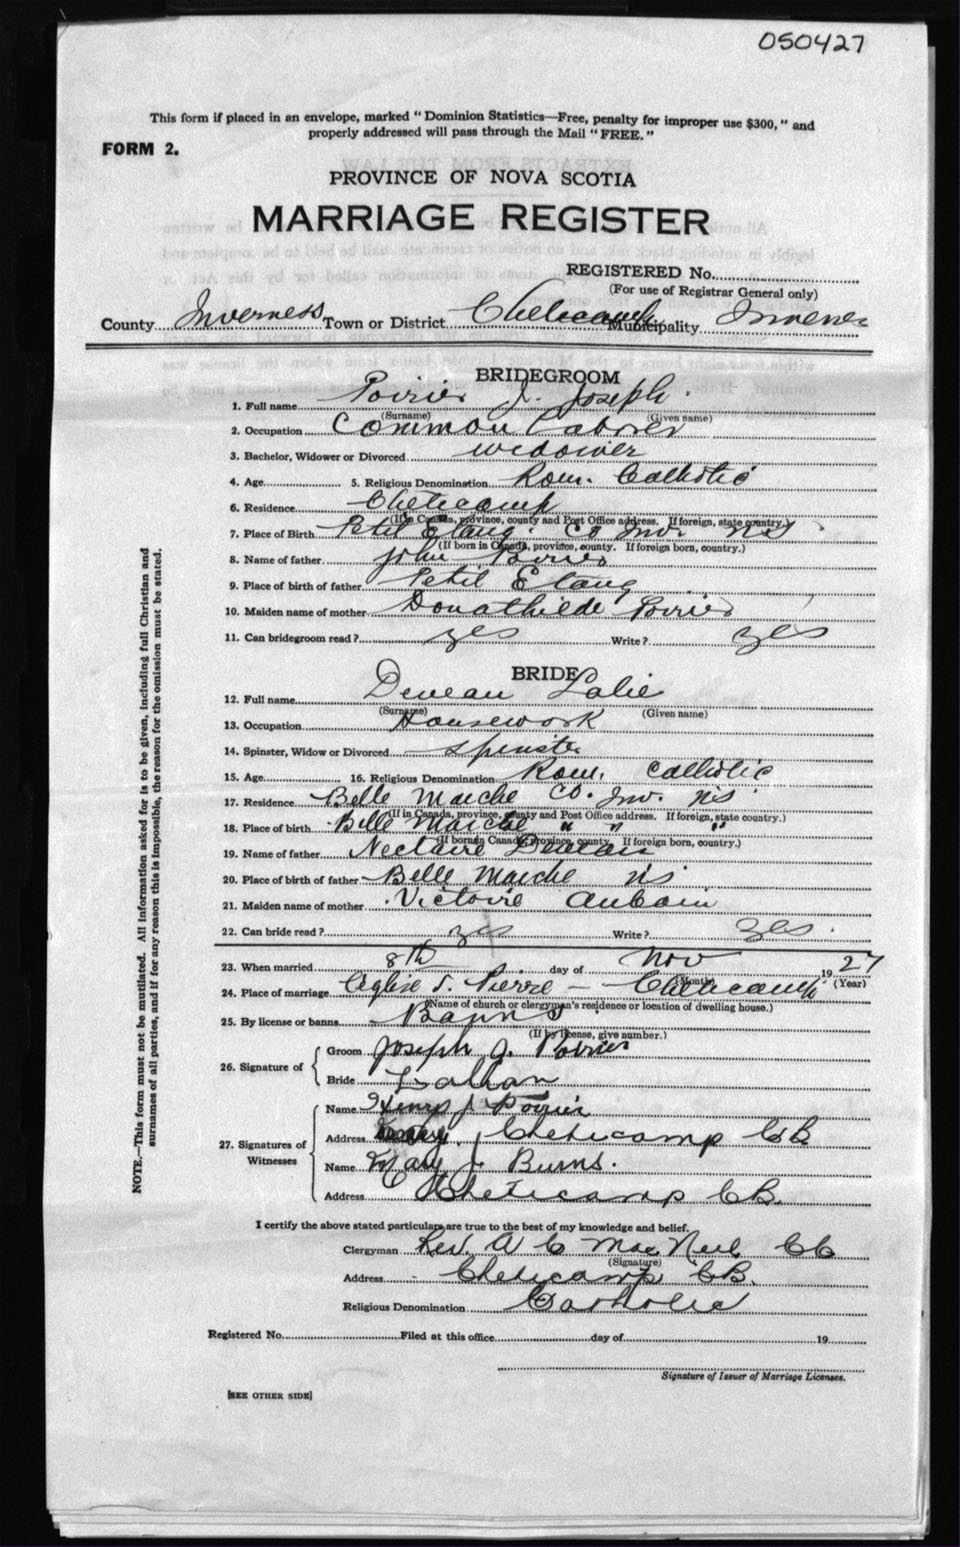 050427
This form if placed in an envelope, marked "Dominion Statistics—Free, penalty for improper use $300," and
properly addressed will pass through the Mail "FREE."
FORM 2.
PROVINCE OF NOVA SCOTIA
MARRIAGE REGISTER
REGISTERED No.
(For use of Registrar General only)
County Inverness Town or District Cheticamp Municipality Inverness
BRIDEGROOM
1. Full name Poirier J. Joseph
(Surname) (Given name)
2. Occupation Common Laborer
3. Bachelor, Widower or Divorced widower
4. Age 5. Religious Denomination Rom. Catholic
6. Residence Cheticamp
(If in Canada, province, county and Post Office address. If foreign, state country.)
7. Place of Birth Petit Etang Co Inv. NS
(If born in Canada, province, county. If foreign born, country.)
8. Name of father John Poirier
9. Place of birth of father Petit Etang
10. Maiden name of mother Donathilde Poirier
11. Can bridegroom read? yes Write? yes
BRIDE
12. Full name Deveau Lalie
(Surname) (Given name)
13. Occupation Housework
14. Spinster, Widow or Divorced Spinster
15. Age 16. Religious Denomination Rom. Catholic
17. Residence Belle Marche Co. Inv. NS
(If in Canada, province, county and Post Office address. If foreign, state country.)
18. Place of birth Belle Marche " " "
(If born in Canada, province, county. If foreign born, country.)
19. Name of father Nectaire Deveau
20. Place of birth of father Belle Marche NS
21. Maiden name of mother Victoire Aucoin
22. Can bride read? yes Write? yes
23. When married 8th day of Nov 1927
(Month) (Year)
24. Place of marriage Eglise S. Pierre – Cheticamp
(Name of church or clergyman's residence or location of dwelling house.)
25. By license or banns Banns
(If by license, give number.)
26. Signature of
Groom Joseph J. Poirier
Bride
27. Signatures of Witnesses
Name Henry J Poirier
Address Cheticamp CB
Name Mary J. Burns.
Address Cheticamp CB.
I certify the above stated particulars are true to the best of my knowledge and belief.
Clergyman Rev. A C MacNeil CC
(Signature)
Address Cheticamp CB.
Religious Denomination Catholic
Registered No. Filed at this office day of 19
Signature of Issuer of Marriage Licenses.
[SEE OTHER SIDE]
NOTE.—This form must not be mutilated. All information asked for is to be given, including full Christian and
surnames of all parties, and if for any reason this is impossible, the reason for the omission must be stated.